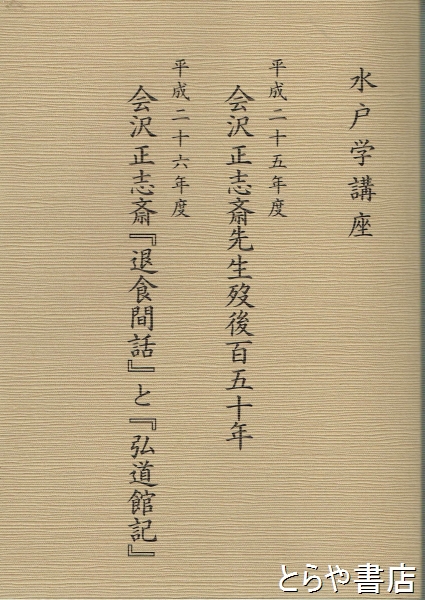 水戸学講座
平成二十五年度
会沢正志斎先生歿後百五十年
平成二十六年度
会沢正志斎『退食間話』と『弘道館記』
とらや書店